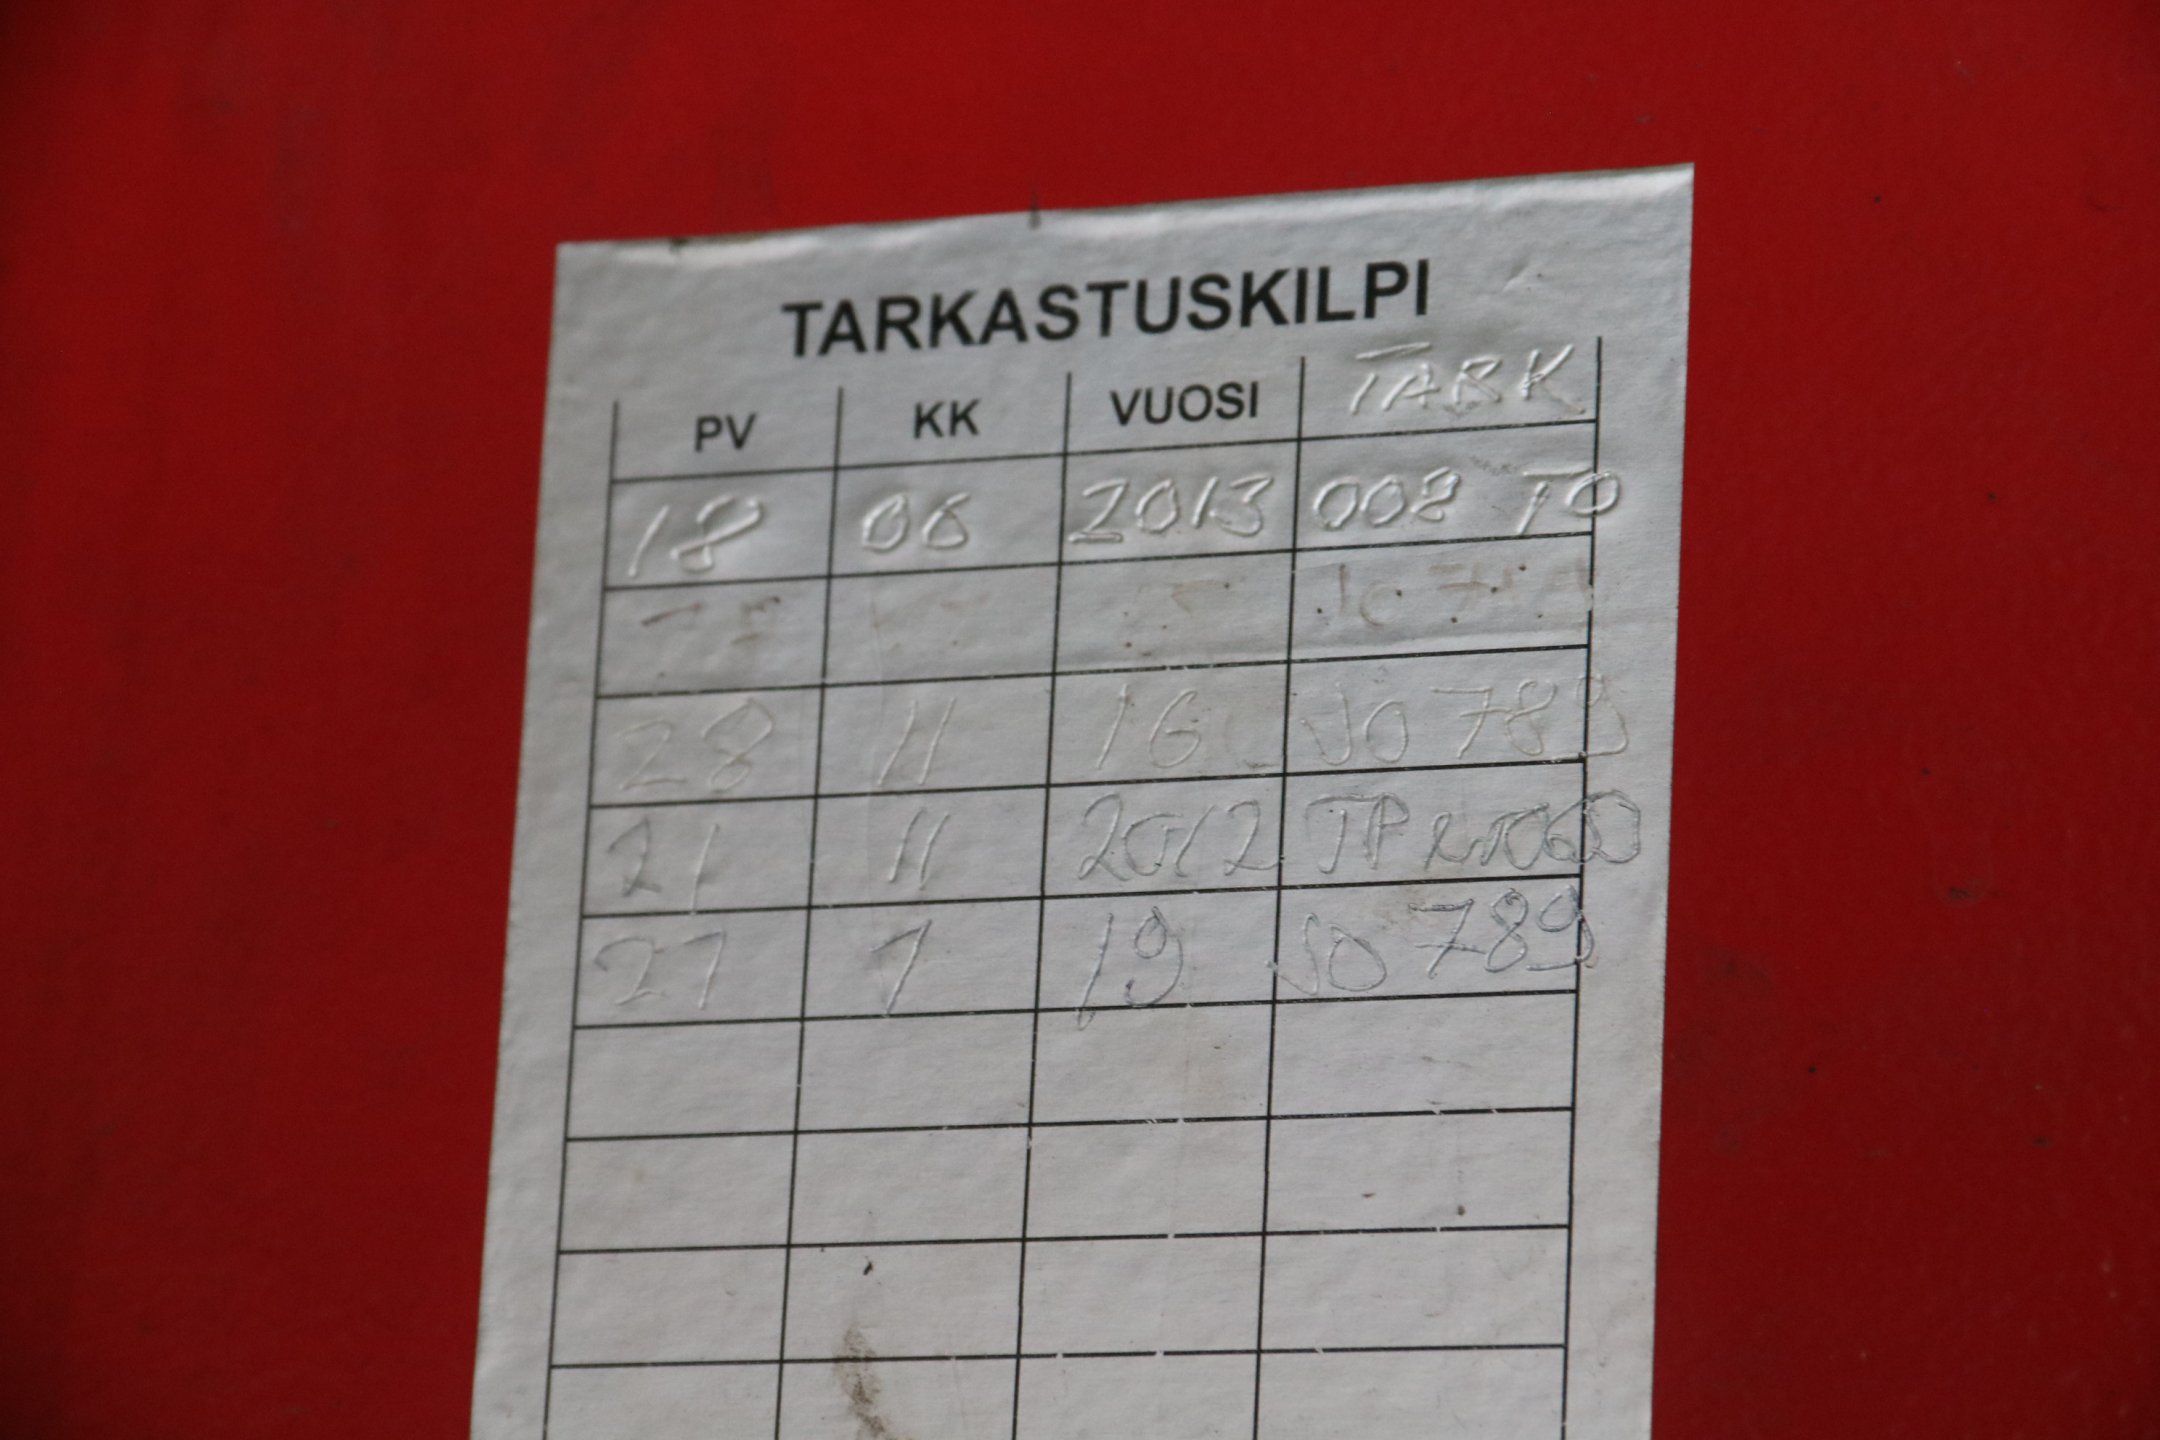 TARKASTUSKILPI
PV KK VUOSI TARK
18 06 2013 008 TO
28 11 16 JO 789
21 11 2012 TP
27 7 19 JO 789